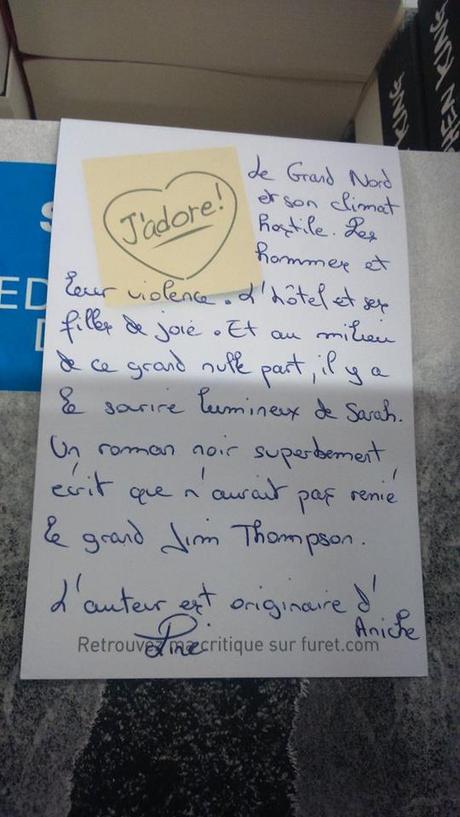 J'adore!
Le Grand Nord
et son climat
hostile. Les
hommes et
leur violence. L'hôtel et ses
filles de joie. Et au milieu
de ce grand nulle part, il y a
le sourire lumineux de Sarah.
Un roman noir superbement
écrit que n'aurait pas renié
le grand Jim Thompson.
L'auteur est originaire d'
Aniche
Retrouvez ma critique sur furet.com
KING
HEN KING
S
ED
D